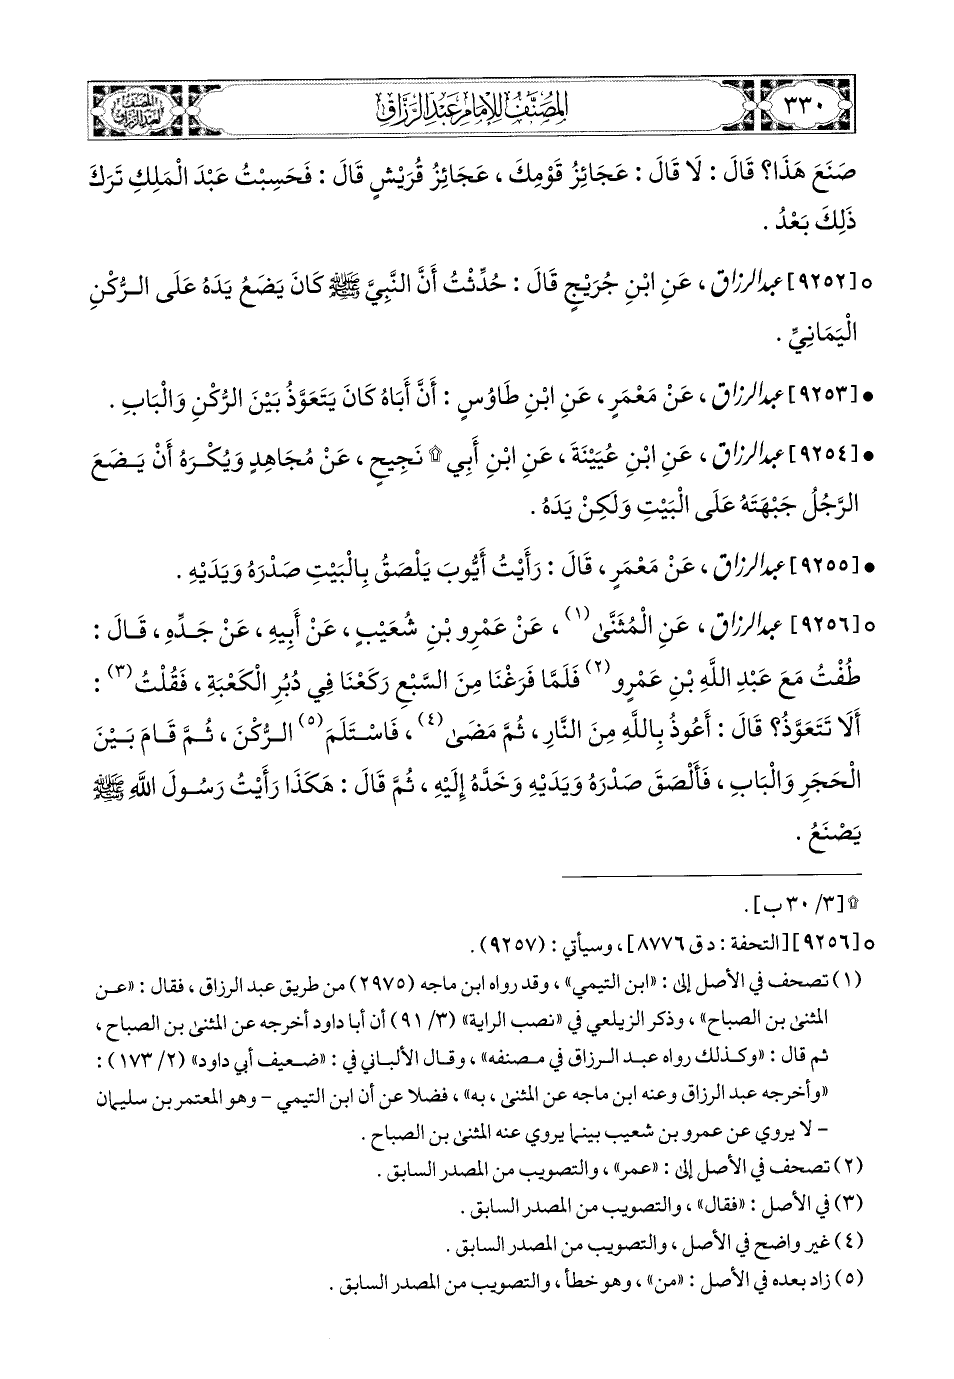 ٣٣٠
المصنف للإمام عبد الرزاق
صَنَعَ هَذَا؟ قَالَ : لَا قَالَ : عَجَائِزُ قَوْمِكَ ، عَجَائِزُ قُرَيْشٍ قَالَ : فَحَسِبْتُ عَبْدَ الْمَلِكِ تَرَكَ
ذَلِكَ بَعْدُ .
○ [٩٢٥٢] عبد الرزاق ، عَنِ ابْنِ جُرَيْجٍ قَالَ : حُدِّثْتُ أَنَّ النَّبِيَّ ﷺ كَانَ يَضَعُ يَدَهُ عَلَى الرُّكْنِ
الْيَمَانِيِّ .
● [٩٢٥٣] عبد الرزاق ، عَنْ مَعْمَرٍ ، عَنِ ابْنِ طَاوُسٍ : أَنَّ أَبَاهُ كَانَ يَتَعَوَّذُ بَيْنَ الرُّكْنِ وَالْبَابِ .
● [٩٢٥٤] عبد الرزاق ، عَنِ ابْنِ عُيَيْنَةَ ، عَنِ ابْنِ أَبِي ۩ نَجِيحٍ ، عَنْ مُجَاهِدٍ وَيُكْرَهُ أَنْ يَضَعَ
الرَّجُلُ جَبْهَتَهُ عَلَى الْبَيْتِ وَلَكِنْ يَدَهُ .
● [٩٢٥٥] عبد الرزاق ، عَنْ مَعْمَرٍ ، قَالَ : رَأَيْتُ أَيُّوبَ يَلْصَقُ بِالْبَيْتِ صَدْرَهُ وَيَدَيْهِ .
○ [٩٢٥٦] عبد الرزاق ، عَنِ الْمُثَنَّى (١) ، عَنْ عَمْرِو بْنِ شُعَيْبٍ ، عَنْ أَبِيهِ ، عَنْ جَدِّهِ ، قَالَ :
طُفْتُ مَعَ عَبْدِ اللَّهِ بْنِ عَمْرٍو (٢) فَلَمَّا فَرَغْنَا مِنَ السَّبْعِ رَكَعْنَا فِي دُبُرِ الْكَعْبَةِ ، فَقُلْتُ (٣) :
أَلَا تَتَعَوَّذُ؟ قَالَ : أَعُوذُ بِاللَّهِ مِنَ النَّارِ ، ثُمَّ مَضَى (٤) ، فَاسْتَلَمَ (٥) الرُّكْنَ ، ثُمَّ قَامَ بَيْنَ
الْحَجَرِ وَالْبَابِ ، فَأَلْصَقَ صَدْرَهُ وَيَدَيْهِ وَخَدَّهُ إِلَيْهِ ، ثُمَّ قَالَ : هَكَذَا رَأَيْتُ رَسُولَ اللَّهِ ﷺ
يَصْنَعُ .
۩ [٣/ ٣٠ ب] .
○ [٩٢٥٦] [التحفة : د ق ٨٧٧٦] ، وسيأتي : (٩٢٥٧) .
(١) تصحف في الأصل إلى : «ابن التيمي» ، وقد رواه ابن ماجه (٢٩٧٥) من طريق عبد الرزاق ، فقال : «عن
المثنى بن الصباح» ، وذكر الزيلعي في «نصب الراية» (٣/ ٩١) أن أبا داود أخرجه عن المثنى بن الصباح ،
ثم قال : «وكذلك رواه عبد الرزاق في مصنفه» ، وقال الألباني في : «ضعيف أبي داود» (٢/ ١٧٣) :
«وأخرجه عبد الرزاق وعنه ابن ماجه عن المثنى ، به» ، فضلا عن أن ابن التيمي - وهو المعتمر بن سليمان
- لا يروي عن عمرو بن شعيب بينما يروي عنه المثنى بن الصباح .
(٢) تصحف في الأصل إلى : «عمر» ، والتصويب من المصدر السابق .
(٣) في الأصل : «فقال» ، والتصويب من المصدر السابق .
(٤) غير واضح في الأصل ، والتصويب من المصدر السابق .
(٥) زاد بعده في الأصل : «من» ، وهو خطأ ، والتصويب من المصدر السابق .